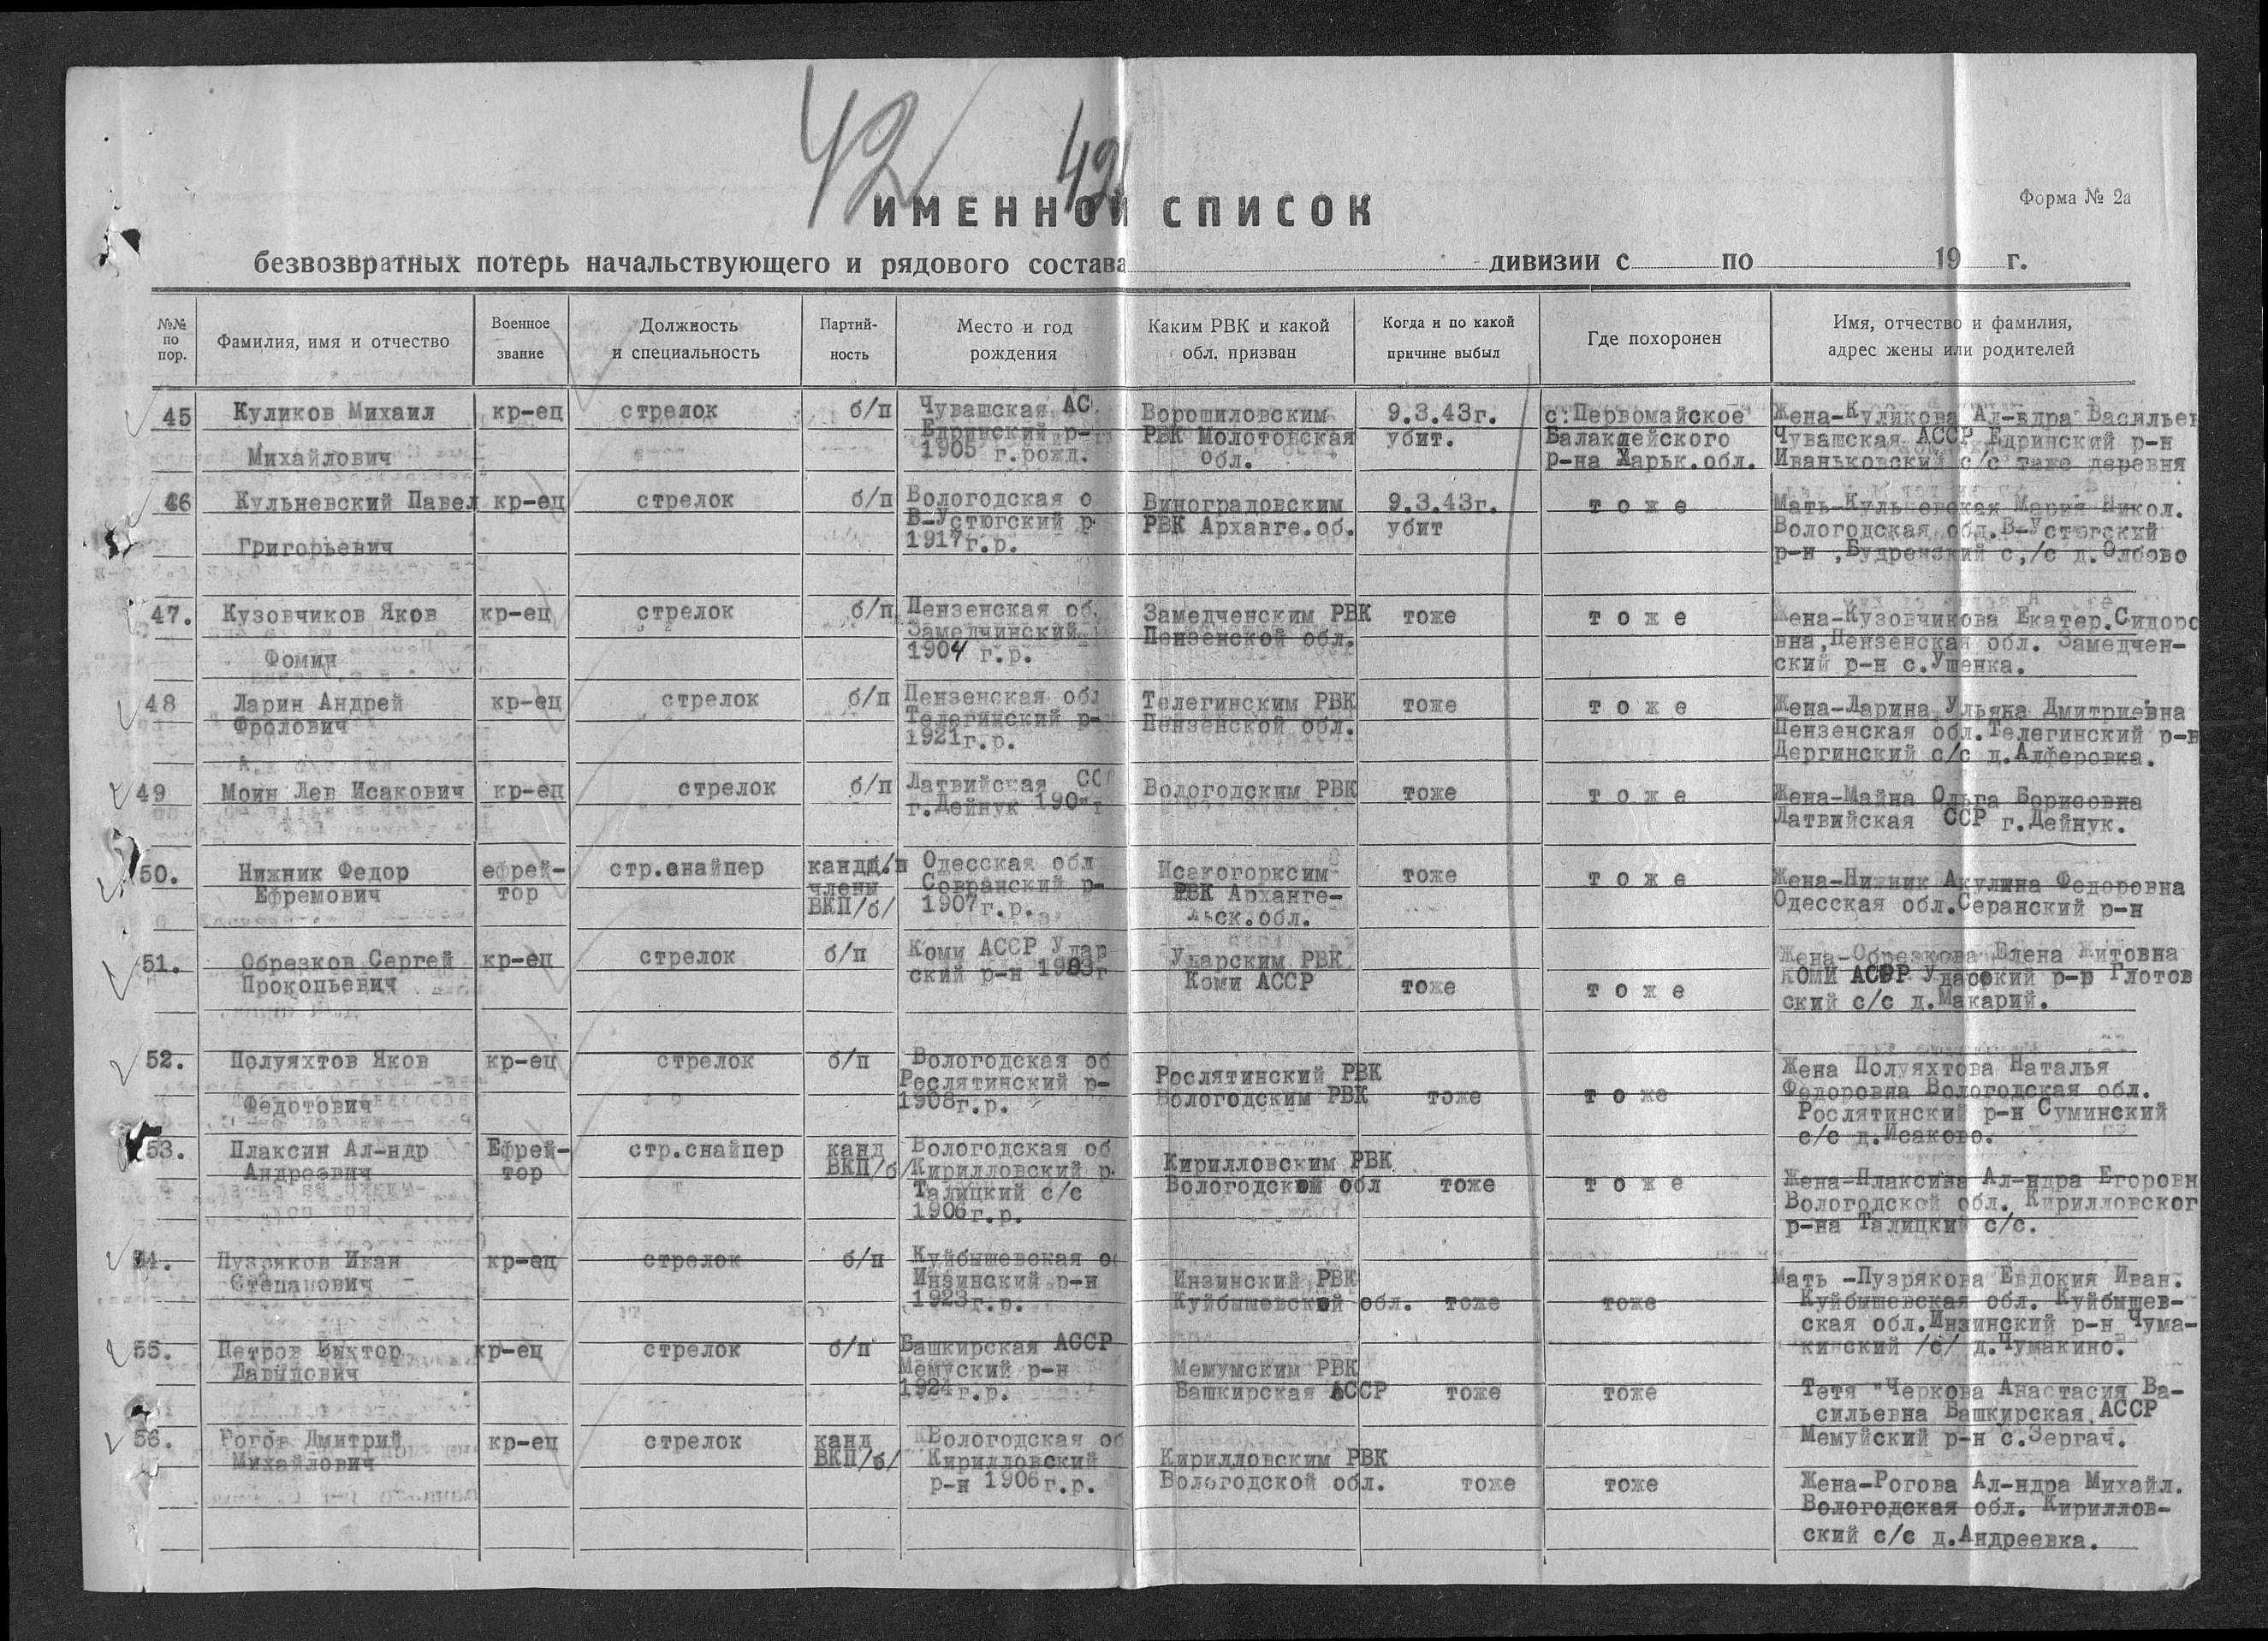 42
42
ИМЕННОЙ СПИСОК
Форма № 2а
безвозвратных потерь начальствующего и рядового состава дивизии с по 19 г.
№№ по пор.
Фамилия, имя и отчество
Военное звание
Должность и специальность
Партий- ность
Место и год рождения
Каким РВК и какой обл. призван
Когда и по какой причине выбыл
Где похоронен
Имя, отчество и фамилия, адрес жены или родителей
45 Куликов Михаил кр-ец стрелок б/п Чувашская АС Ворошиловским 9.3.43г. с.Первомайское Жена-Куликова Ал-ндра Васильев
Ядринский р- РВК Молотовская убит. Балаклейского Чувашская АССР Ядринский р-н
Михайлович 1905 г.рожд. обл. р-на Харьк.обл. Иваньковский с/с тоже деревня
46 Кульневский Павел кр-ец стрелок б/п Вологодская о Виноградовским 9.3.43г. т о ж е Мать-Кульневская Мария Никол.
В-Устюгский р РВК Арханге.об. убит Вологодская обд.В-Устюгский
Григорьевич 1917г.р. р-н ,Будренский с,/с д.Олбово
47. Кузовчиков Яков кр-ец стрелок б/п Пензенская об. Замедченским РВК тоже т о ж е Жена-Кузовчикова Екатер.Сидоро
Замедчинский Пензенской обл. вна,Пензенская обл. Замедчен-
Фомич 1904 г.р. ский р-н с.Ушенка.
48 Ларин Андрей кр-ец стрелок б/п Пензенская обл Телегинским РВК тоже т о ж е Жена-Ларина Ульяна Дмитриевна
Фролович Телегинский р- Пензенской обл. Пензенская обл.Телегинский р-н
1921г.р. Дергинский с/с д.Алферовка.
49 Моин Лев Исакович кр-ец стрелок б/п Латвийская СС Вологодским РВК тоже т о ж е Жена-Майна Ольга Борисовна
г.Дейнук Латвийская ССР г.Дейнук.
50. Нижник Федор ефрей- стр.снайпер Одесская обл Исакогорксим тоже т о ж е Жена-Нижник Акулина Федоровна
Ефремович тор члены Совранский р- РВК Арханге- Одесская обл.Серанский р-н
ВКП/б/ 1907г.р. льск.обл.
51. Обрезков Сергей кр-ец стрелок б/п Коми АССР Удар Ударским РВК Жена-Обрезкова Елена Житовна
Прокопьевич ский р-н 1903г Коми АССР тоже т о ж е КОМИ АССР р-р Глотов
ский с/с д.Макарий.
52. Полуяхтов Яков кр-ец стрелок б/п Вологодская об Рослятинский РВК Жена Полуяхтова Наталья
Рослятинский р- Вологодским РВК тоже т о же Федоровна Вологодская обл.
Федотович 1908г.р. Рослятинский р-н Суминский
с/с д.Исаково.
53. Плаксин Ал-ндр Ефрей- стр.снайпер канд Вологодская об Кирилловским РВК
Андреевич тор ВКП/б/ Кирилловский р. Вологодской обл тоже т о ж е Жена-Плаксина Ал-ндра Егоровн
Талицкий с/с Вологодской обл. Кирилловског
1906г.р. р-на Талицкий с/с.
54. Пузряков Иван кр-ец стрелок б/п Куйбышевская о
Степанович Инзинский р-н Инзинский РВК Мать -Пузрякова Евдокия Иван.
1923г.р. Куйбышевской обл. тоже тоже Куйбышевская обл. Куйбышев-
ская обл.Инзинский р-н Чума-
кинский /с/ д.Чумакино.
55. Петров Виктор кр-ец стрелок б/п Башкирская АССР
Давыдович Мемуский р-н Мемумским РВК
1924г.р. Башкирская АССР тоже тоже Тетя "Черкова Анастасия Ва-
сильевна Башкирская АССР
Мемуйский р-н с.Зергач.
56. Рогов Дмитрий кр-ец стрелок канд Вологодская об
Михайлович ВКП/б/ Кирилловский Кирилловским РВК
р-н 1906г.р. Вологодской обл. тоже тоже Жена-Рогова Ал-ндра Михайл.
Вологодская обл. Кириллов-
ский с/с д.Андреевка.